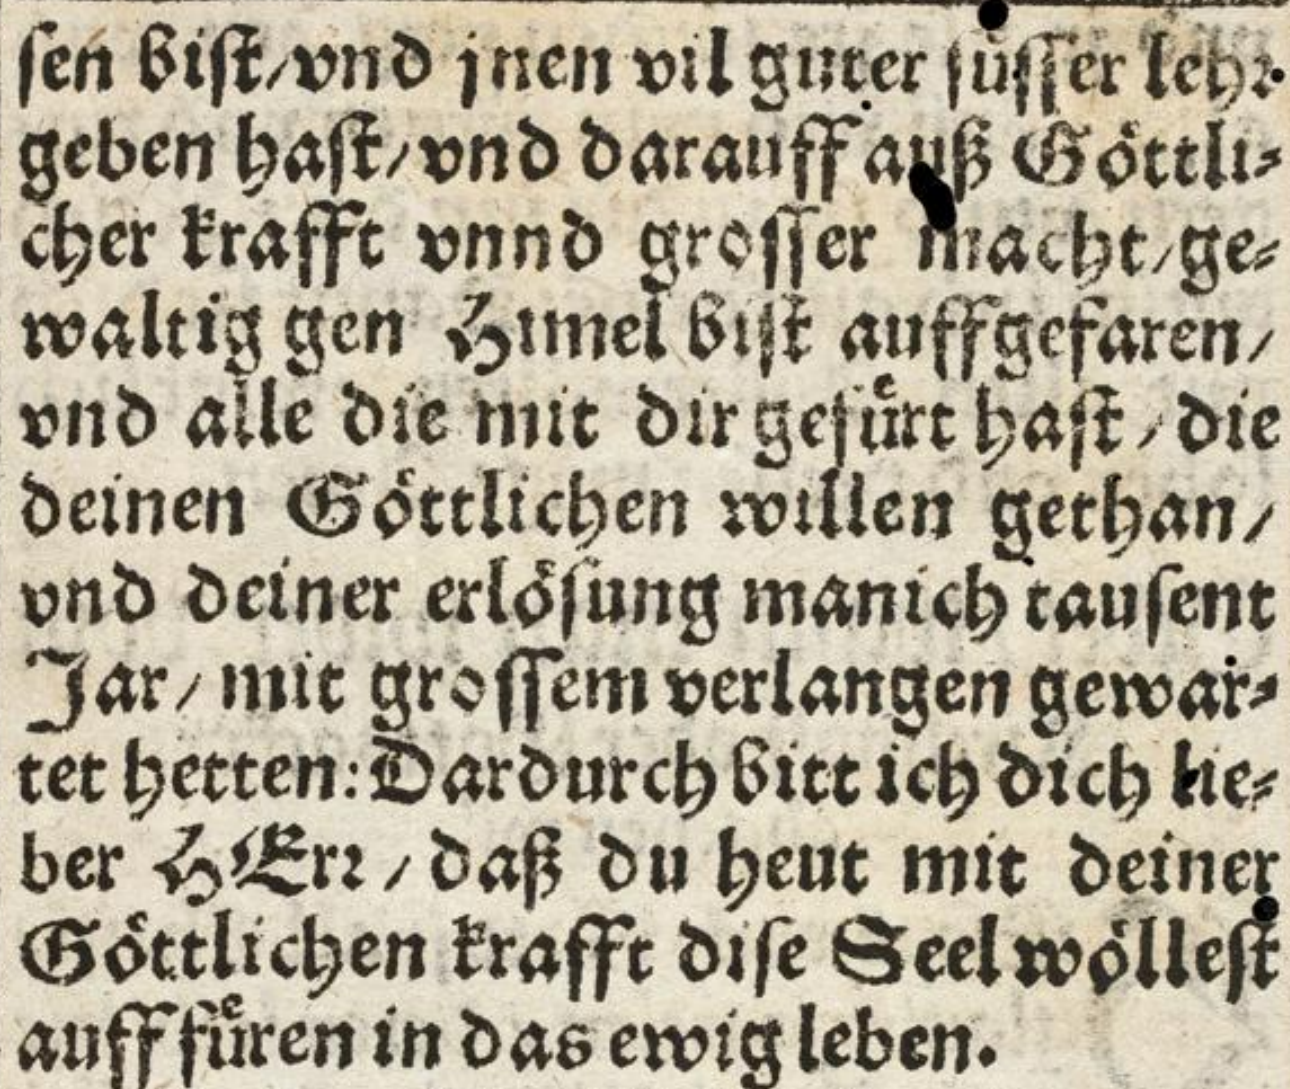 ſen biſt/vnd jnen vil guter ſuͤſſer lehꝛ
geben haſt/vnd darauff auß Goͤttli⸗
cher krafft vnnd groſſer macht/ge⸗
waltig gen Himel biſt auffgefaren/
vnd alle die mit dir gefuͤrt haſt/die
deinen Goͤttlichen willen gethan/
vnd deiner erloͤſung manich tauſent
Jar/mit groſſem verlangen gewar⸗
tet hetten: Dardurch bitt ich dich lie⸗
ber HErꝛ/daß du heut mit deiner
Goͤttlichen krafft diſe Seel woͤlleſt
auff fuͤren in das ewig leben.